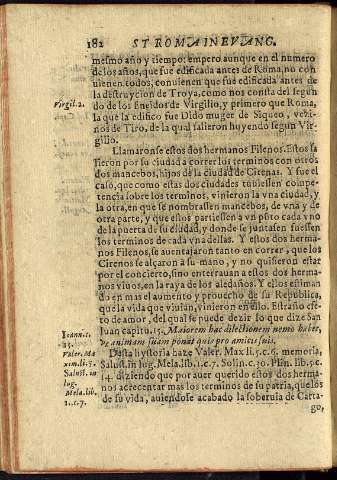 182 ST ROMA IN EVANG.
mesmo año y tiempo: empero aunque en el numero
de los años, que fue edificada antes de Roma, no con
uienen todos, conuienen que fue edificada antes de
la destruycion de Troya, como nos consta del segun
Virgil. 2.
do de los Eneidos de Virgilio, y primero que Roma,
la que la edifico fue Dido muger de Siqueo, vezi-
nos de Tiro, de la qual salieron huyendo segun Vir-
gilio.
Llamaronse estos dos hermanos Filenos. Estos sa
lieron por su ciudad a correr los terminos con otros
dos mancebos, hijos de la ciudad de Cirenas. Y fue el
caso, que como estas dos ciudades tuuiessen compe-
tencia sobre los terminos, vinieron la vna ciudad, y
la otra, en que se nombrassen mancebos, de vna y de
otra parte, y que estos partiessen a vn pũto cada vno
de la puerta de su ciudad, y donde se juntasen fuessen
los terminos de cada vna dellas. Y estos dos herma-
nos Filenos, se auentajaron tanto en correr, que los
Cirenos se alçaron a su mano, y no quisieron estar
por el concierto, sino enterrauan a estos dos herma-
nos viuos, en la raya de los aledaños. Y ellos estiman
do en mas el aumento y prouecho de su Republica,
que la vida que viuian, vinieron en ello. Estraño efe-
to de amor, del qual se puede dezir lo que dize San
Ioann. c.
15.
Iuan capitu. 15. Maiorem hac dilectionem nemo habet,
vt animam suam ponat quis pro amicis suis.
Valer. Ma
xim. li. 5.
Salust. in
Iug.
Mela. lib.
1. c. 7.
Desta hystoria haze Valer. Max. li. 5. c. 6. memoria,
Salust. in Iug. Mela. lib. 1. c. 7. Solin. c. 30. Plin. lib. 5. c.
14. diziendo que por auer querido estos dos herma
nos acrecentar mas los terminos de su patria, que los
de su vida, auiendose acabado la soberuia de Carta-
go,